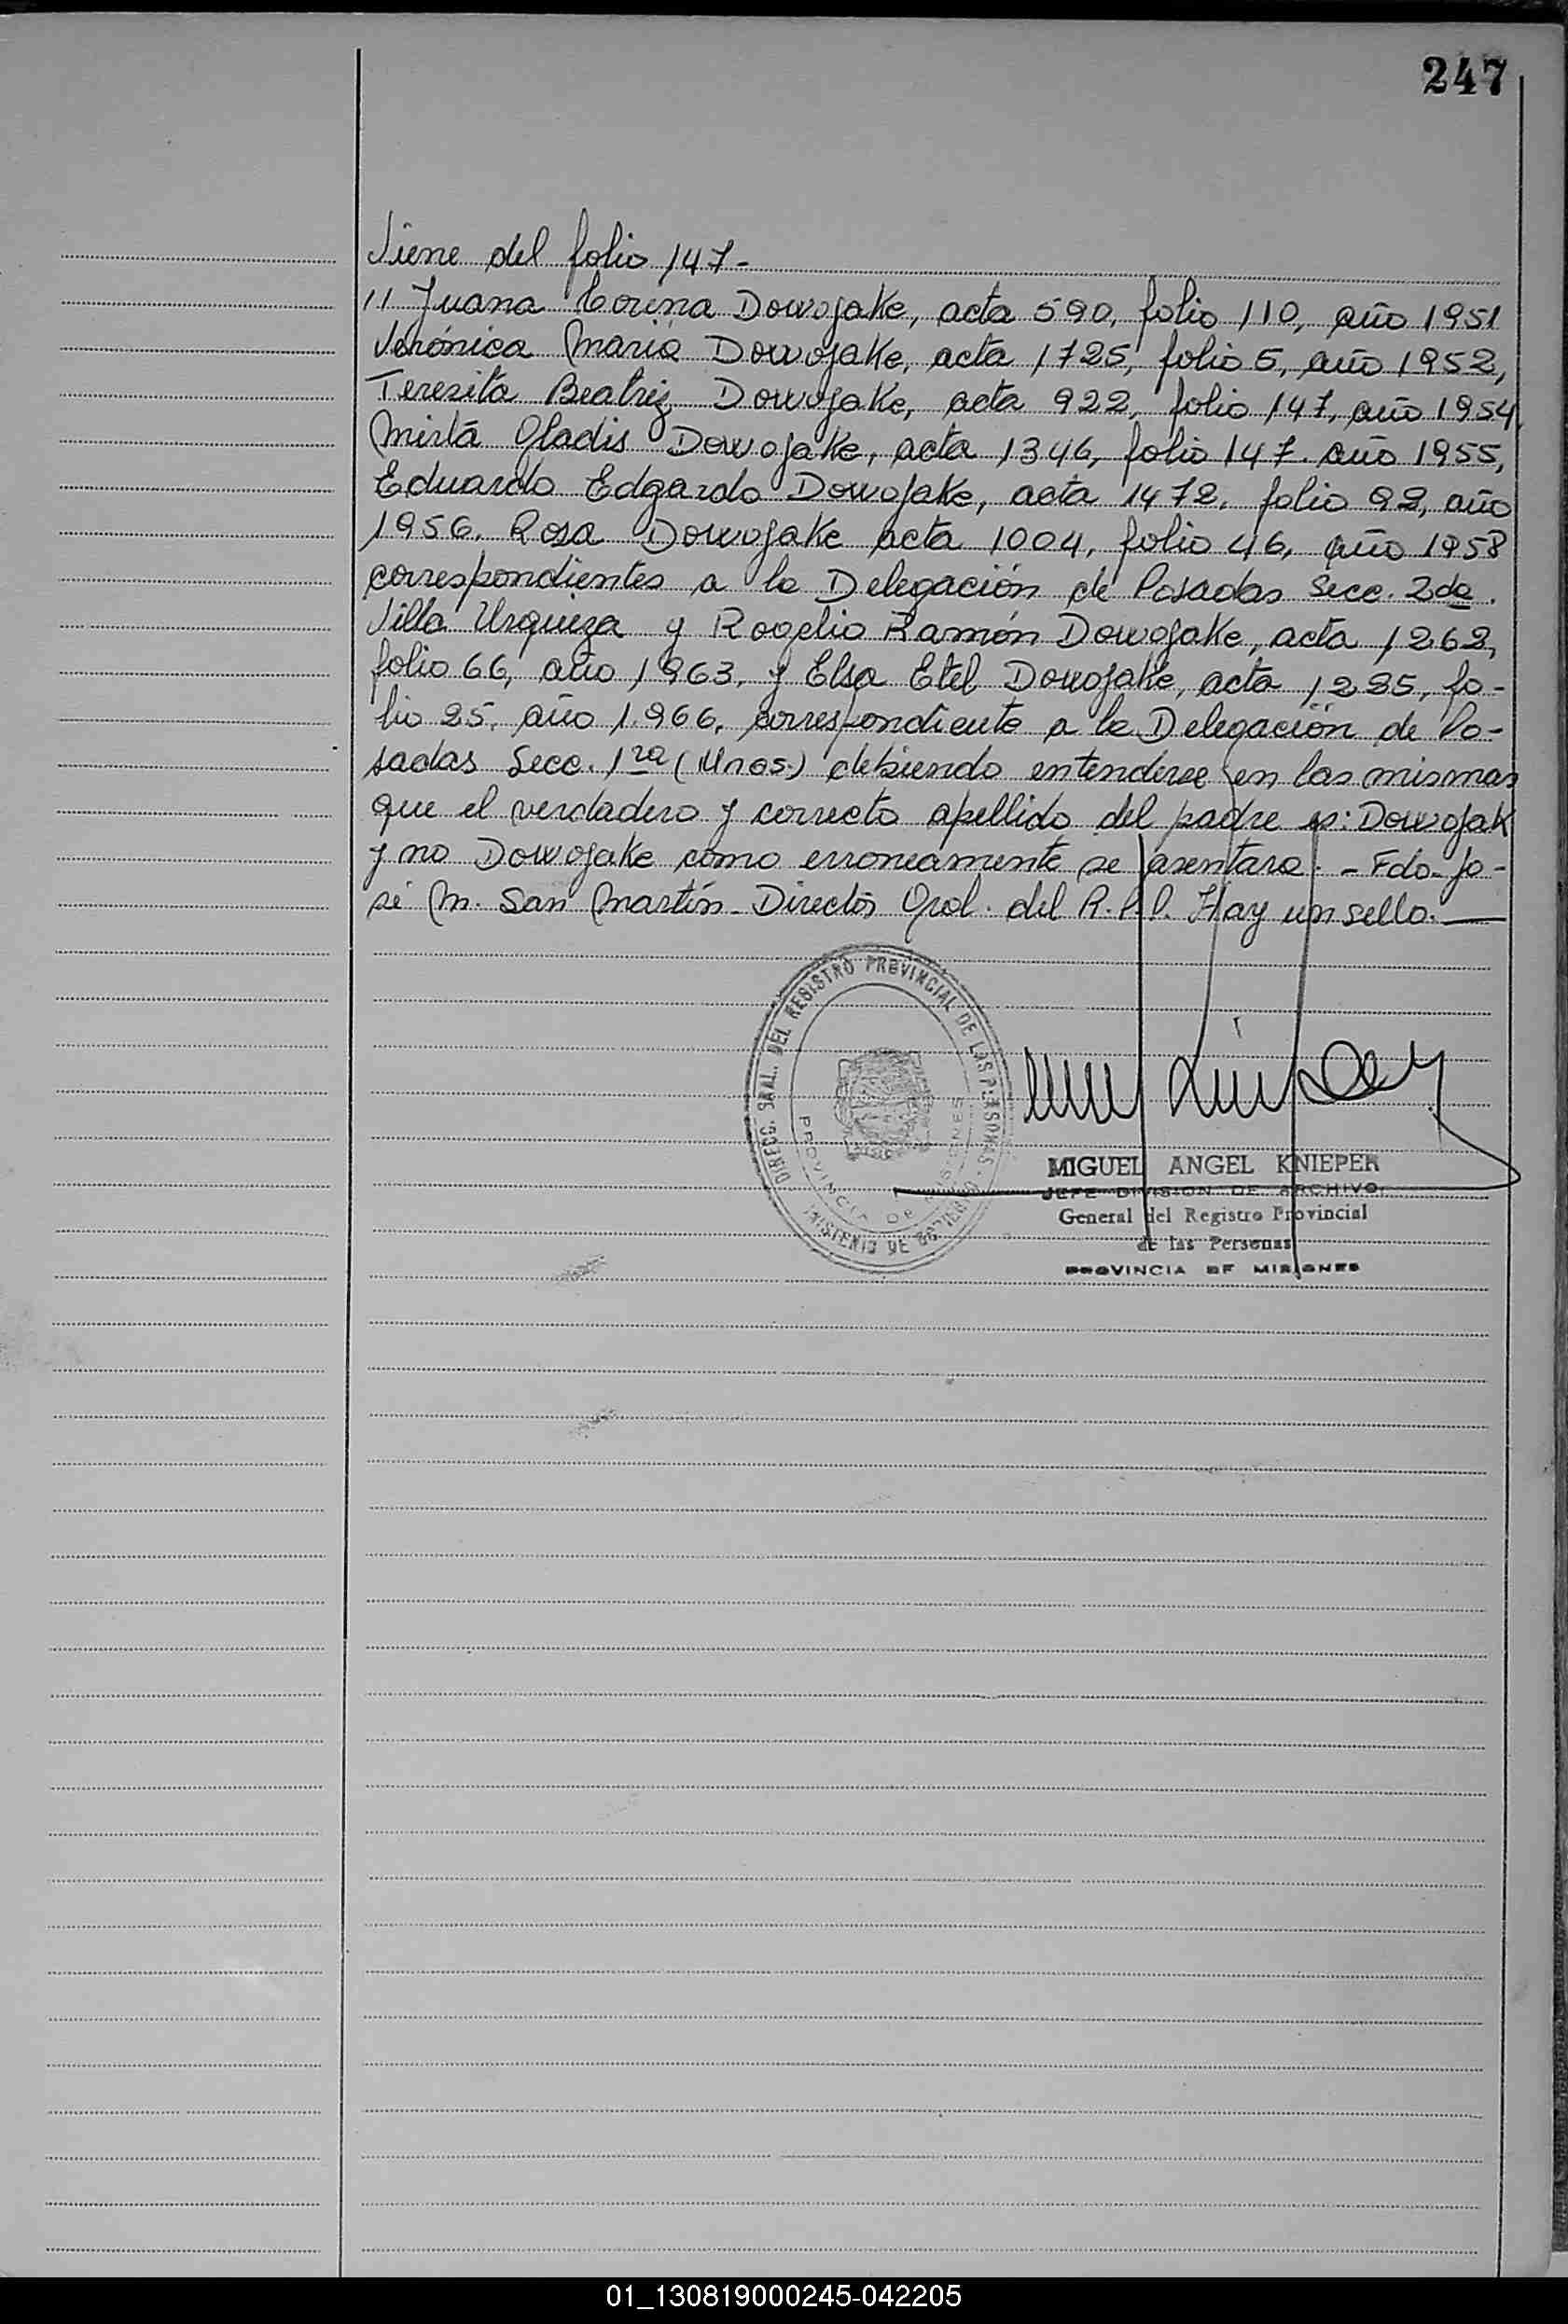 247
Viene del folio 147-
11 Juana Corina Dowojake, acta 590, folio 110, año 1951
Verónica María Dowojake, acta 1725, folio 5, año 1952,
Teresita Beatriz Dowojake, acta 922, folio 147, año 1954,
Mirtá Gladis Dowojake, acta 1346, folio 147. año 1955,
Eduardo Edgardo Dowojake, acta 1472, folio 92, año
1956. Rosa Dowojake acta 1004, folio 46, año 1958
correspondientes a la Delegación de Posadas Secc. 2da.
Villa Urquiza y Rogelio Ramón Dowojake, acta 1262,
folio 66, año 1963, y Elsa Etel Dowojake, acta 1225, fo-
lio 25, año 1.966, correspondiente a la Delegación de Po-
sadas Secc. 1ra (Mnes.) debiendo entenderse en las mismas
que el verdadero y correcto apellido del padre es: Dowojak
y no Dowojake como erroneamente se asentara. - Fdo. Jo-
sé M. San Martín - Director Gral. del R.P.P. Hay un sello.
DIRECC. GRAL. DEL REGISTRO PROVINCIAL DE LAS PERSONAS
PROVINCIA DE MISIONES
MINISTERIO DE GOBIERNO
MIGUEL ANGEL KNIEPER
JEFE DIVISION DE ARCHIVO
General del Registro Provincial
de las Personas
PROVINCIA DE MISIONES
01_130819000245-042205